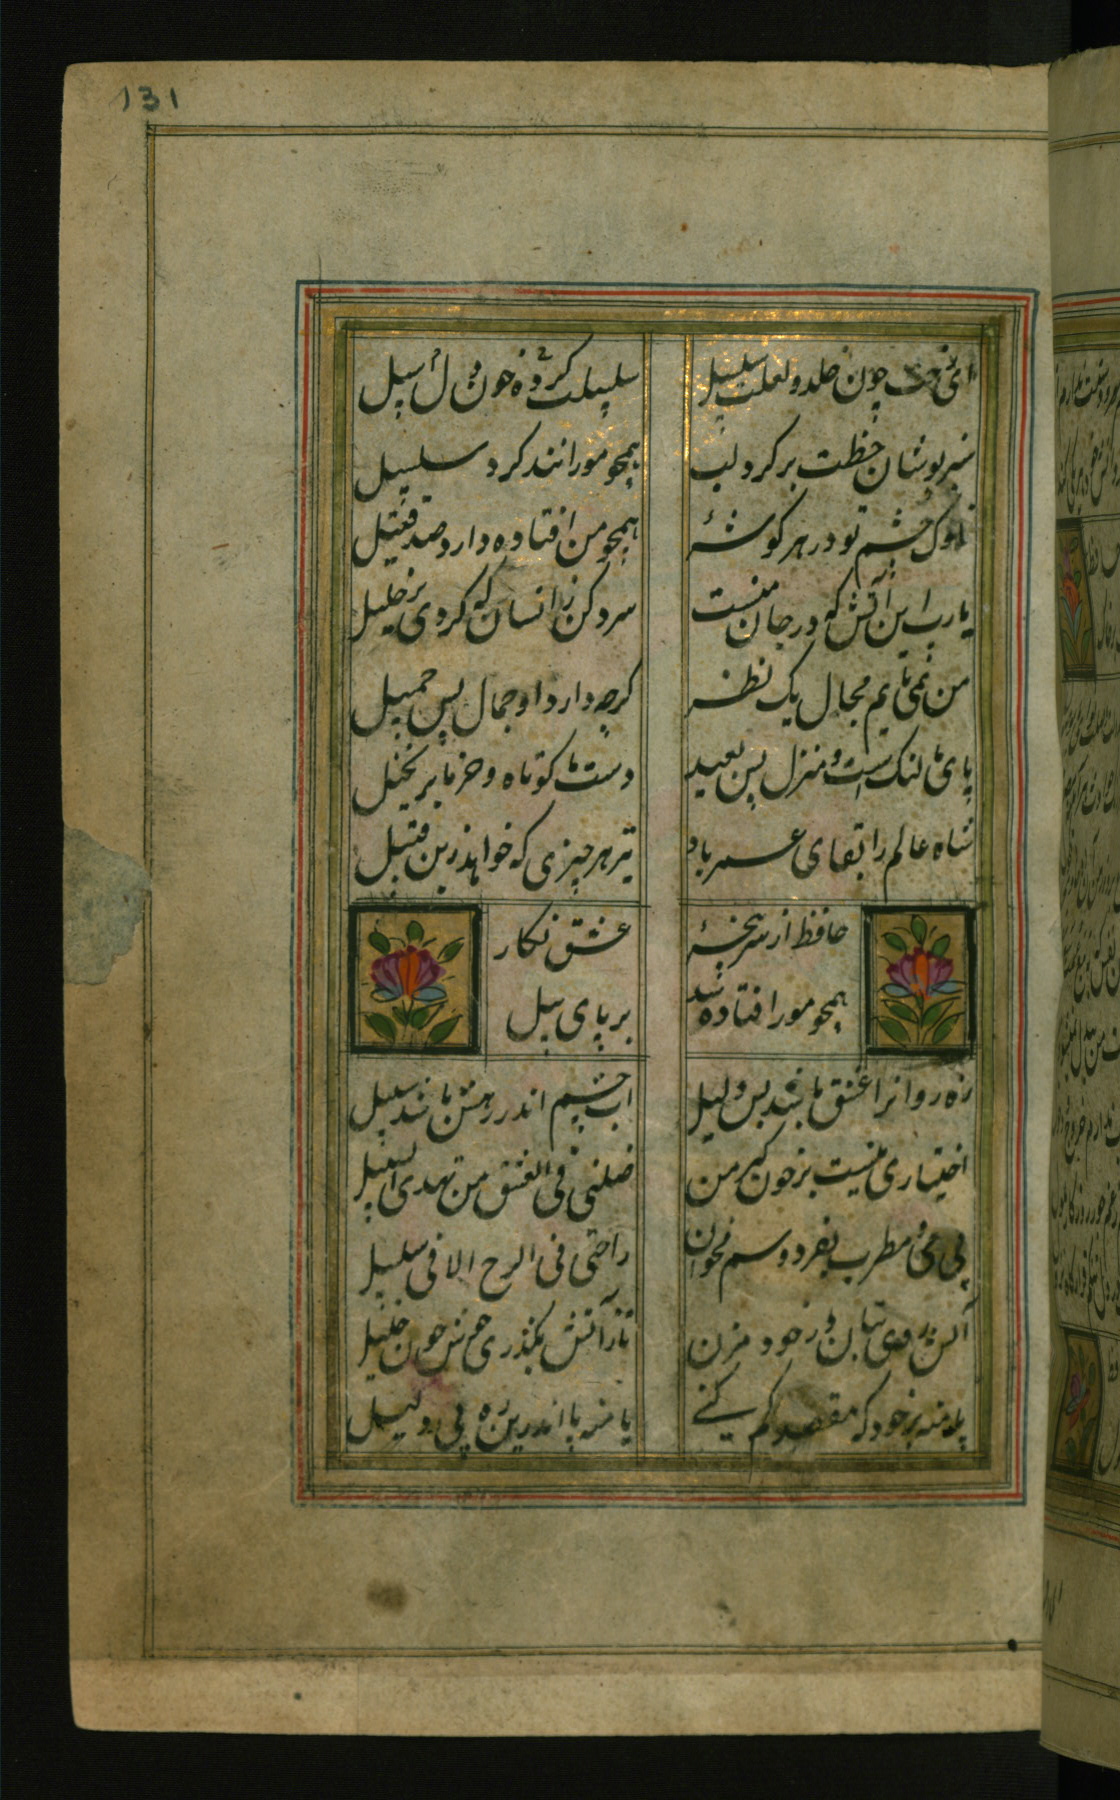 131
ای رخت چون خلد و لعلت سلسبیل
سلسبیلت کرده خون و دل سبیل
سبزپوشان خطت بر کرد لب
همچو مورانند کرد سلسبیل
ناوک چشم تو در هر کوشهٔ
همچو من افتاده دارد صد قتیل
یارب این آتش که در جان منست
سرد کن زانسان که کردی بر خلیل
من نمی یابم مجال یک نظر
کرچه دارد او جمال بس جمیل
پای ما لنک است و منزل بس بعید
دست ما کوتاه و خرما بر نخیل
شاه عالم را بقای عمر باد
هر چیزی که خواهد زین قبیل
حافظ از سرپنجهٔ
عشق نکار
همچو مور افتاده شد
بر پای پیل
ره روانرا عشق باشد بس دلیل
اب چشم اندر رهش باشد سبیل
اختیاری نیست من
ضلنی فی العشق من یهدی السبیل
بی می و مطرب بفردوسم مخوان
راحتی فی الراح الا فی سلسبیل
آتش روی بتان در خود مزن
تا ز آتش بگذری هم خلیل
یا منه بر خود که مقصد کم کنی
یا منه پا اندرین ره بی دلیل